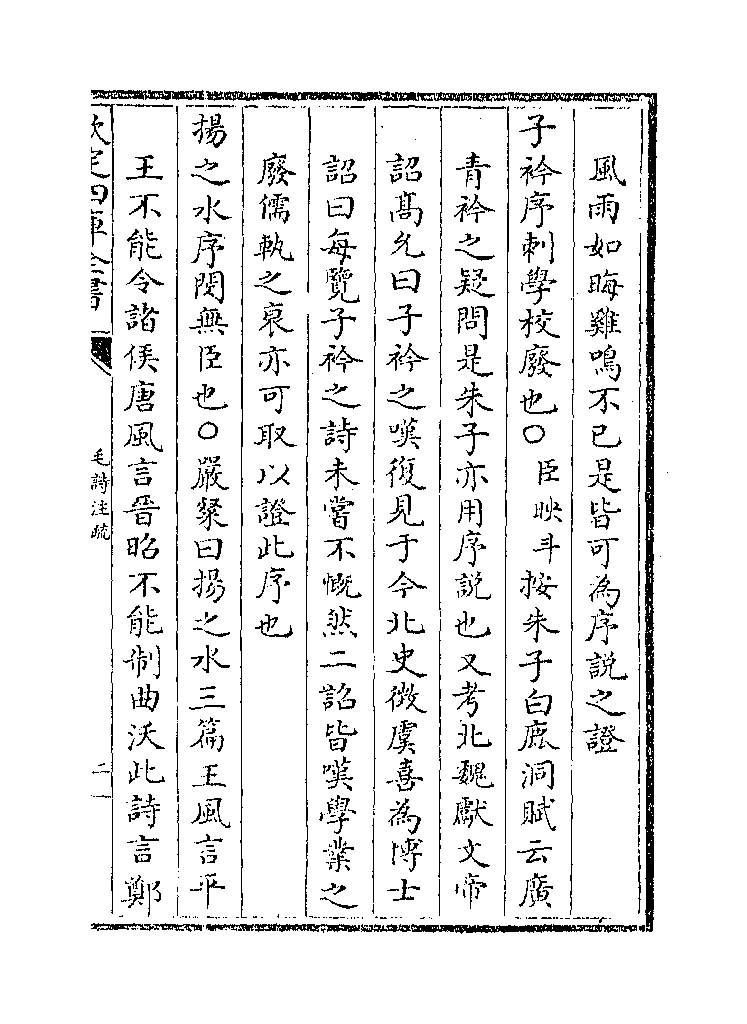 風雨如晦雞鳴不已是皆可為序説之證
子衿序刺學校廢也○臣映斗按朱子白鹿洞賦云廣
青衿之疑問是朱子亦用序説也又考北魏獻文帝
詔髙允曰子衿之嘆復見于今北史徴虞喜為博士
詔曰每覽子衿之詩未嘗不慨然二詔皆嘆學業之
廢儒軌之衰亦可取以證此序也
揚之水序閔無臣也○嚴粲曰揚之水三篇王風言平
王不能令諸侯唐風言晉昭不能制曲沃此詩言鄭
欽定四庫全書
毛詩注疏
二